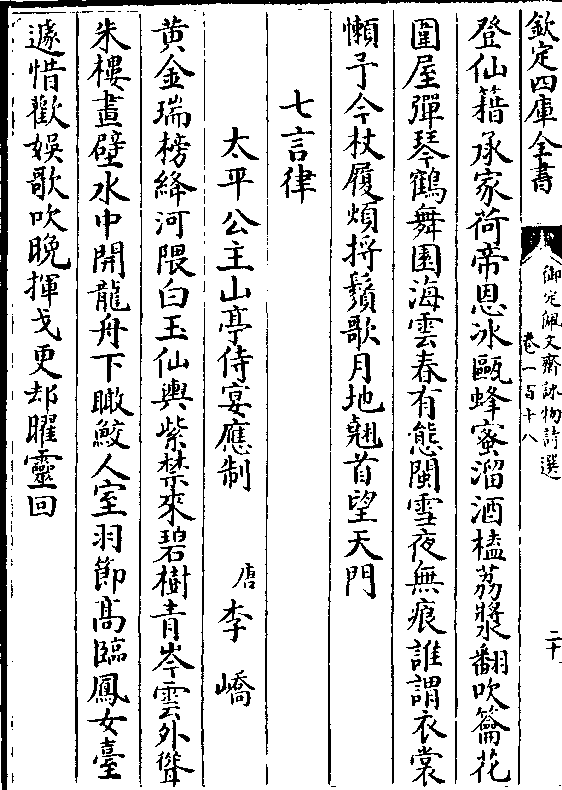 欽定四庫全書
御定佩文齋詠物詩選
卷一百十八
二十
登仙籍承家荷帝恩冰甌蜂蜜溜酒榼荔漿翻吹籥花
圍屋彈琴鶴舞園海雲春有態閩雪夜無痕誰謂衣裳
懶予今杖履煩捋鬚歌月地翹首望天門
七言律
太平公主山亭侍宴應制
唐 李嶠
黄金瑞榜絳河隈白玉仙輿紫禁來碧樹青岑雲外聳
朱樓畫壁水中開龍舟下瞰鮫人室羽節髙臨鳳女臺
遽惜歡娛歌吹晚揮戈更却曜靈回